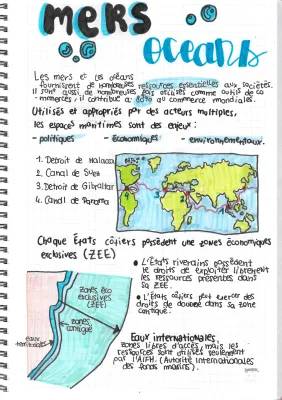 MERS
OCEANS
Les mers et les océans
fournissent de nombreuses ressources essentielles aux sociétés.
Il sont aussi de nombreuses fois utilisés comme outils de co
-mmerces, il contribue à 80% au commerce mondiales.
Utilisés et appropriés par des acteurs multiples,
les espaces maritimes sont des enjeux :
- politiques - économiques - environnementaux.
1. Détroit de Malacca
2. Canal de Suez
3. Détroit de Gibraltar
4. Canal de Panama
Chaque États côtiers possèdent une zones économiques
exclusives (ZEE)
L'États riverains possèdent
le droits de exploiter librement
les ressources présentes dans
sa ZEE.
L'États côtiers peut exercer des
droits de douane dans sa zone
contiguë.
zones éco
exclusives
(ZEE)
zones
contiguë
eaux
territoriales
Eaux internationales
zones libres d'accès, mais les
ressources sont utilisés seulement
par l'AIFM. (Autorité internationales
des fonds marins).